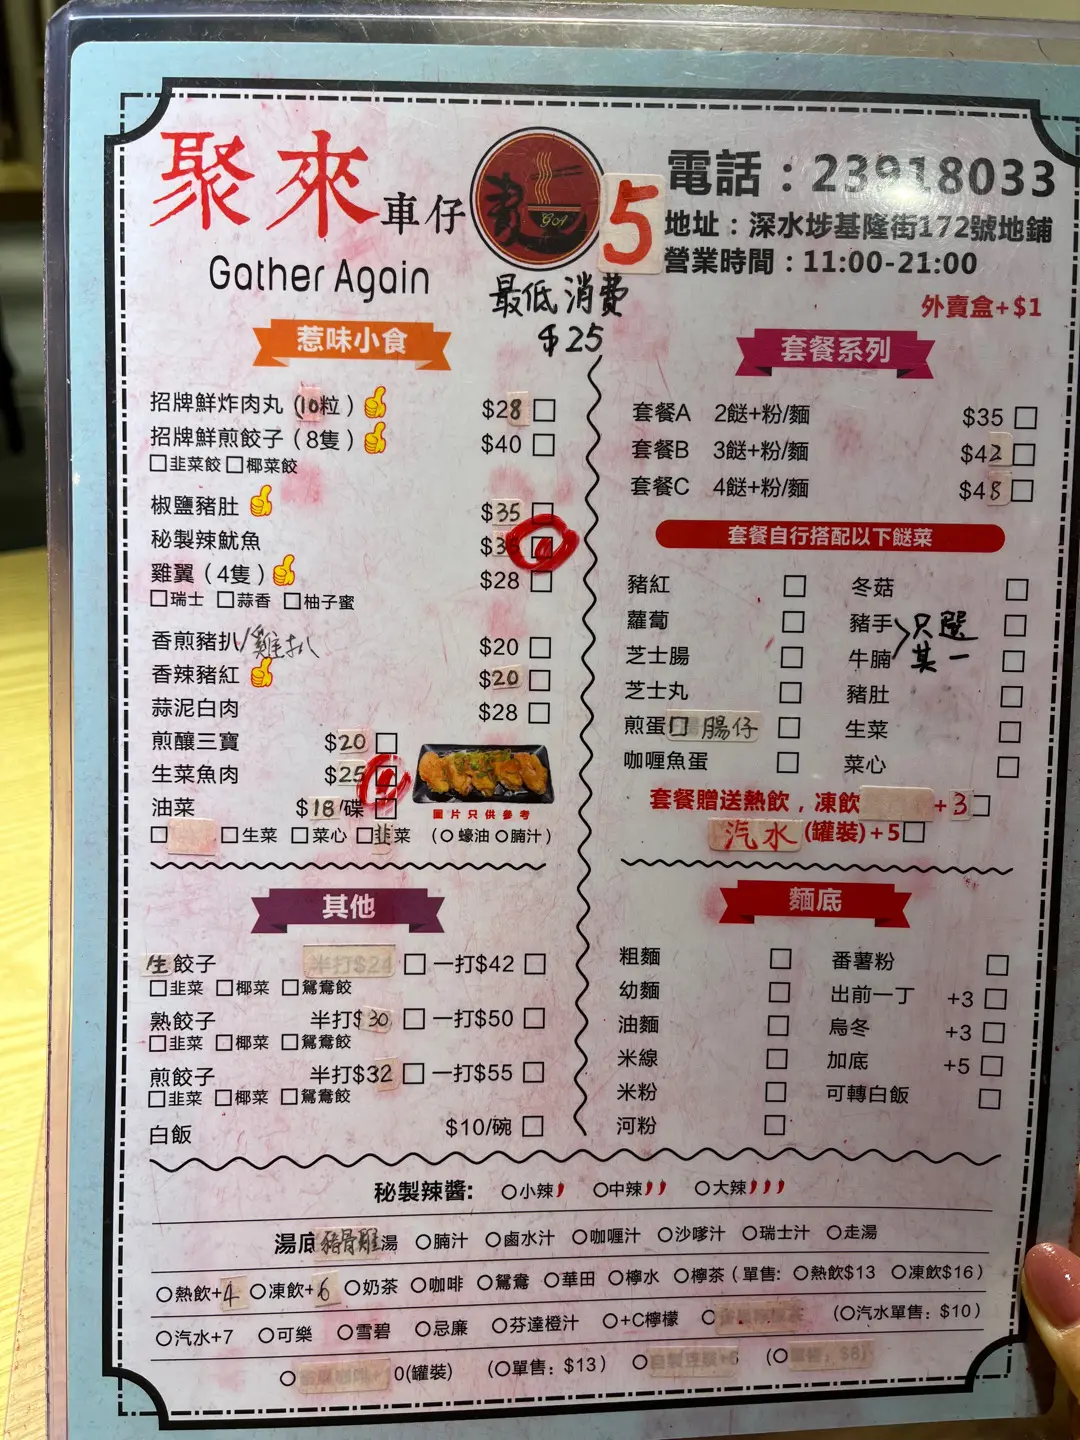 聚來車仔
Gather Again
GA
5
電話：23918033
地址：深水埗基隆街172號地鋪
營業時間：11:00-21:00
外賣盒+$1
最低消費
$25
惹味小食
招牌鮮炸肉丸（10粒） $28
招牌鮮煎餃子（8隻） $40
韭菜餃 椰菜餃
椒鹽豬肚 $35
秘製辣魷魚
雞翼（4隻） $28
瑞士 蒜香 柚子蜜
香煎豬扒/雞扒 $20
香辣豬紅 $20
蒜泥白肉 $28
煎釀三寶 $20
生菜魚肉 $25
油菜 $18/碟
生菜 菜心 韭菜 (蠔油 腩汁)
圖片只供參考
其他
生餃子 半打$24 一打$42
韭菜 椰菜 鴛鴦餃
熟餃子 半打$30 一打$50
韭菜 椰菜 鴛鴦餃
煎餃子 半打$32 一打$55
韭菜 椰菜 鴛鴦餃
白飯 $10/碗
套餐系列
套餐A 2餸+粉/麵 $35
套餐B 3餸+粉/麵 $42
套餐C 4餸+粉/麵 $48
套餐自行搭配以下餸菜
豬紅 冬菇
蘿蔔 豬手
芝士腸 牛腩
只選其一
芝士丸 豬肚
煎蛋 腸仔 生菜
咖喱魚蛋 菜心
套餐贈送熱飲，凍飲 +3
汽水(罐裝)+5
麵底
粗麵 番薯粉
幼麵 出前一丁 +3
油麵 烏冬 +3
米線 加底 +5
米粉 可轉白飯
河粉
秘製辣醬: 小辣 中辣 大辣
湯底 豬骨雞湯 腩汁 鹵水汁 咖喱汁 沙嗲汁 瑞士汁 走湯
熱飲+4 凍飲+6 奶茶 咖啡 鴛鴦 華田 檸水 檸茶（單售: 熱飲$13 凍飲$16）
汽水+7 可樂 雪碧 忌廉 芬達橙汁 +C檸檬 (汽水單售: $10)
0(罐裝) (單售: $13)